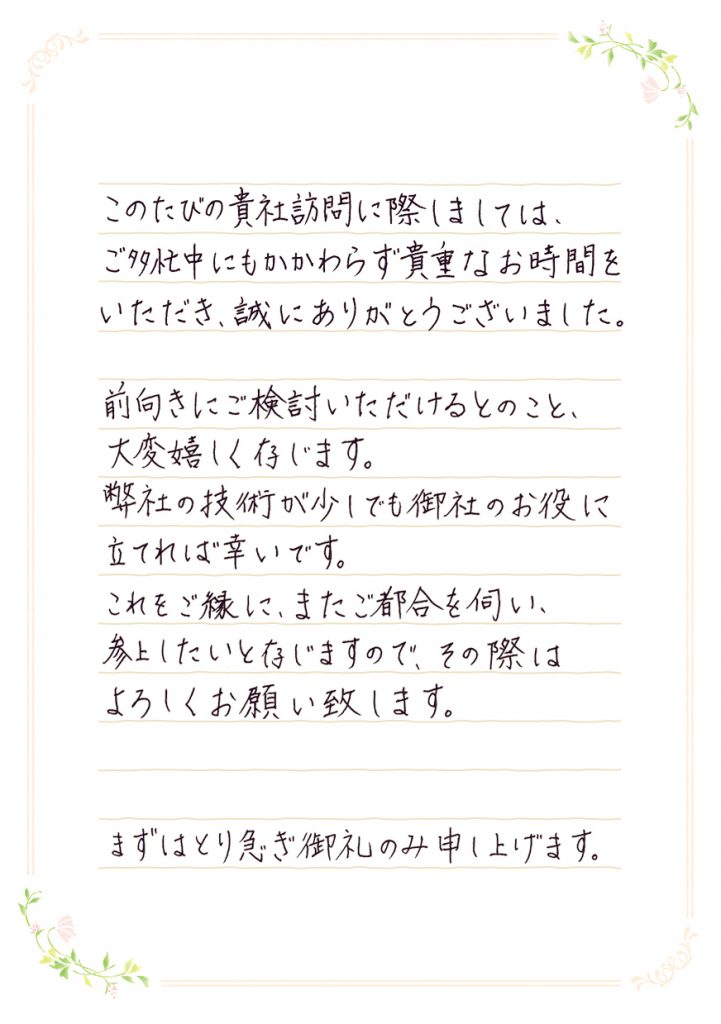 このたびの貴社訪問に際しましては、
ご多忙中にもかかわらず貴重なお時間を
いただき、誠にありがとうございました。
前向きにご検討いただけるとのこと、
大変嬉しく存じます。
弊社の技術が少しでも御社のお役に
立てれば幸いです。
これをご縁に、またご都合を伺い、
参上したいと存じますので、その際は
よろしくお願い致します。
まずはとり急ぎ御礼のみ申し上げます。